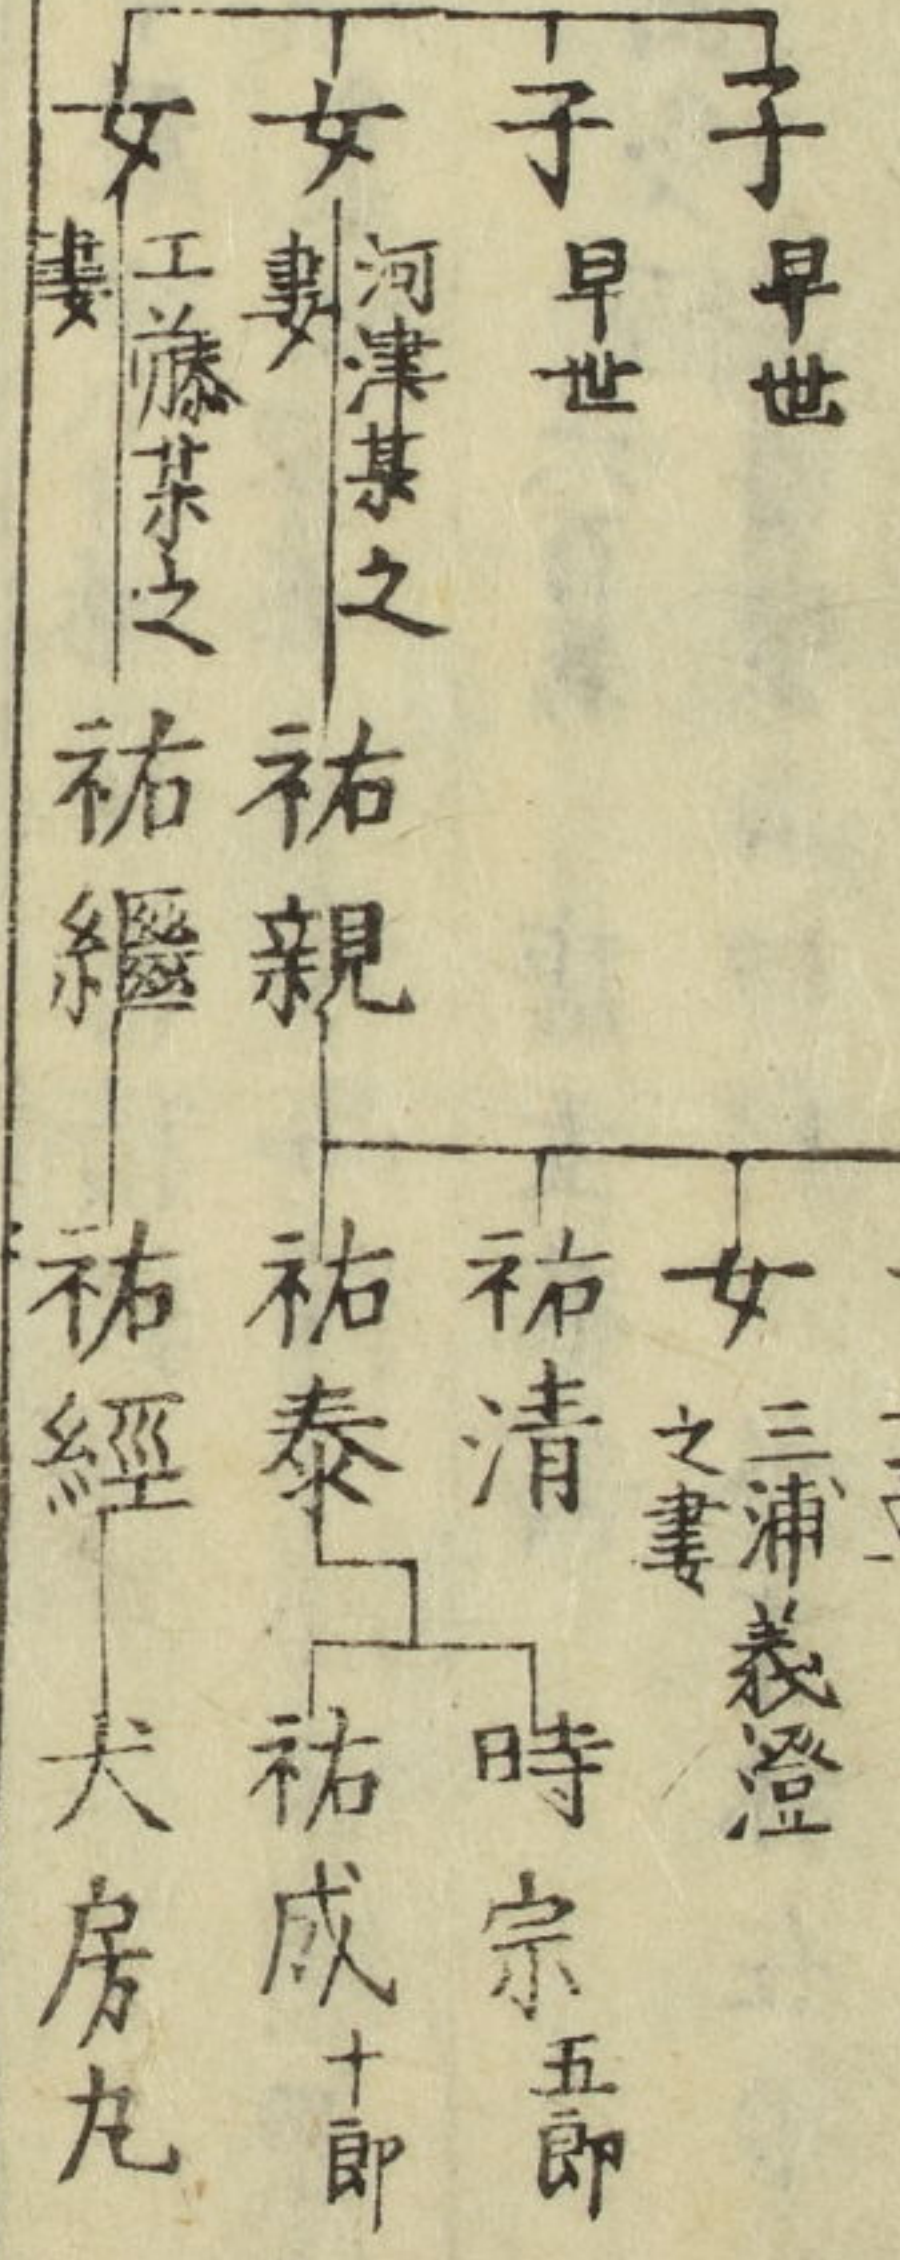 子 早世
子 早世
女 河津某之妻
女 工藤某之妻
祐親
祐繼
女 三浦義澄之妻
祐清
祐泰
祐經
時宗 五郎
祐成 十郎
犬房丸